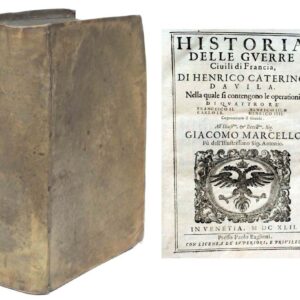 HISTORIA
DELLE GVERRE
Ciuili di Francia,
DI HENRICO CATERINO
DAVILA.
Nella quale si contengono le operationi
DI QVATTRO RE
FRANCESCO II.
CARLO IX.
Cognominato il Grande.
GIACOMO MARCELLO
Fù dell'Illustrissimo Sig. Antonio.
IN VENETIA, M DC XLII.
Presso Paolo Baglioni.
CON LICENZA DE' SVPERIORI, E PRIVILEGI